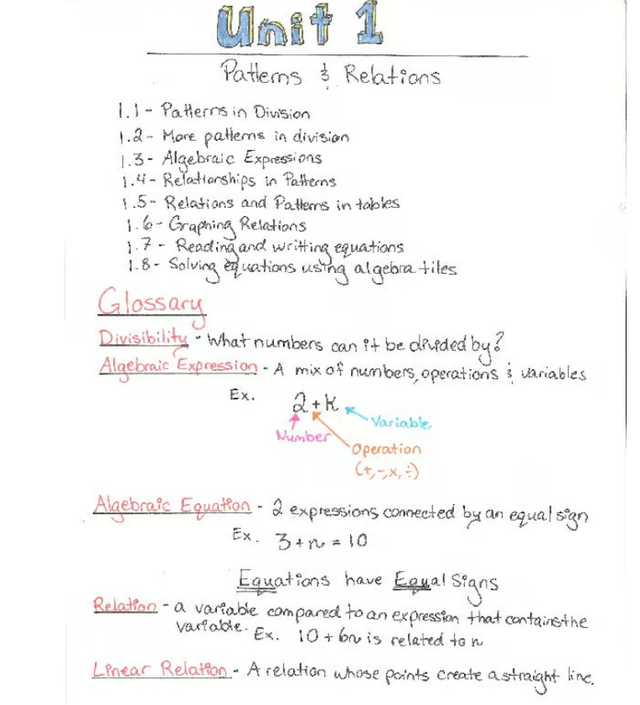 Unit 1
Patterns & Relations
1.1- Patterns in Division
1.2- More patterns in division
1.3- Algebraic Expressions
1.4- Relationships in Patterns
1.5- Relations and Patterns in tables
1.6- Graphing Relations
1.7- Reading and writting equations
1.8- Solving equations using algebra tiles
Glossary
Divisibility - What numbers can it be divided by?
Algebraic Expression - A mix of numbers, operations & variables
Ex. 2+k
Variable
Number
Operation
(+,-,x,÷)
Algebraic Equation - 2 expressions connected by an equal sign
Ex. 3+n=10
Equations have Equal Signs
Relation - a variable compared to an expression that contains the
variable. Ex. 10+6n is related to n
Linear Relation - A relation whose points create a straight line.